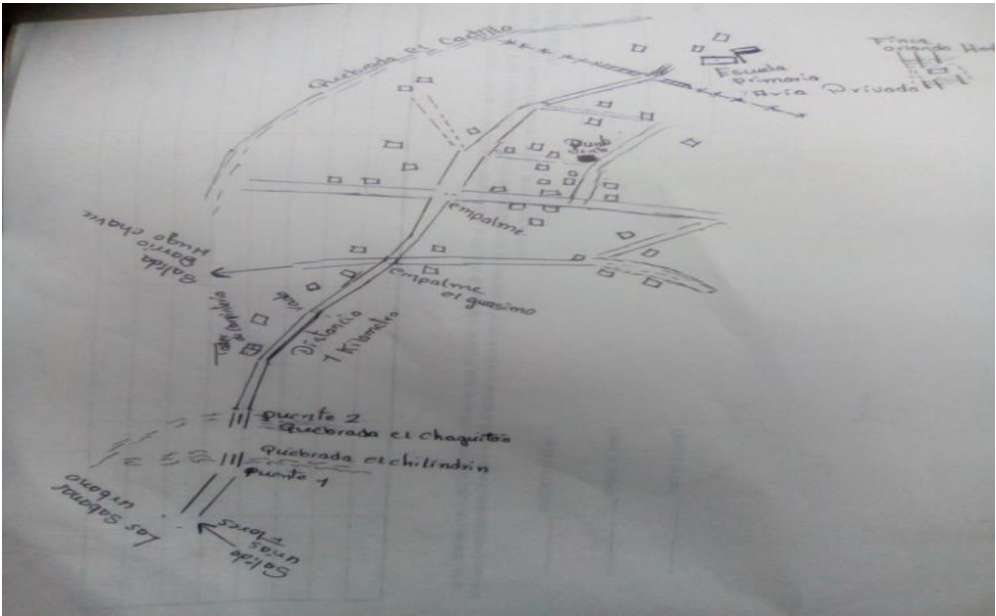 Quebrada el Castillo
Escuela
primaria
Finca
orlando
Privada
empalme.
empalme
el guasimo
Salida
Barrio
Hugo chave
Distancia
1 Kilometro
puente 2
Quebrada el chaguiton
Quebrada el chilindrin
puente 1
Las Sabanas
urbano
Salida
urias
Flores